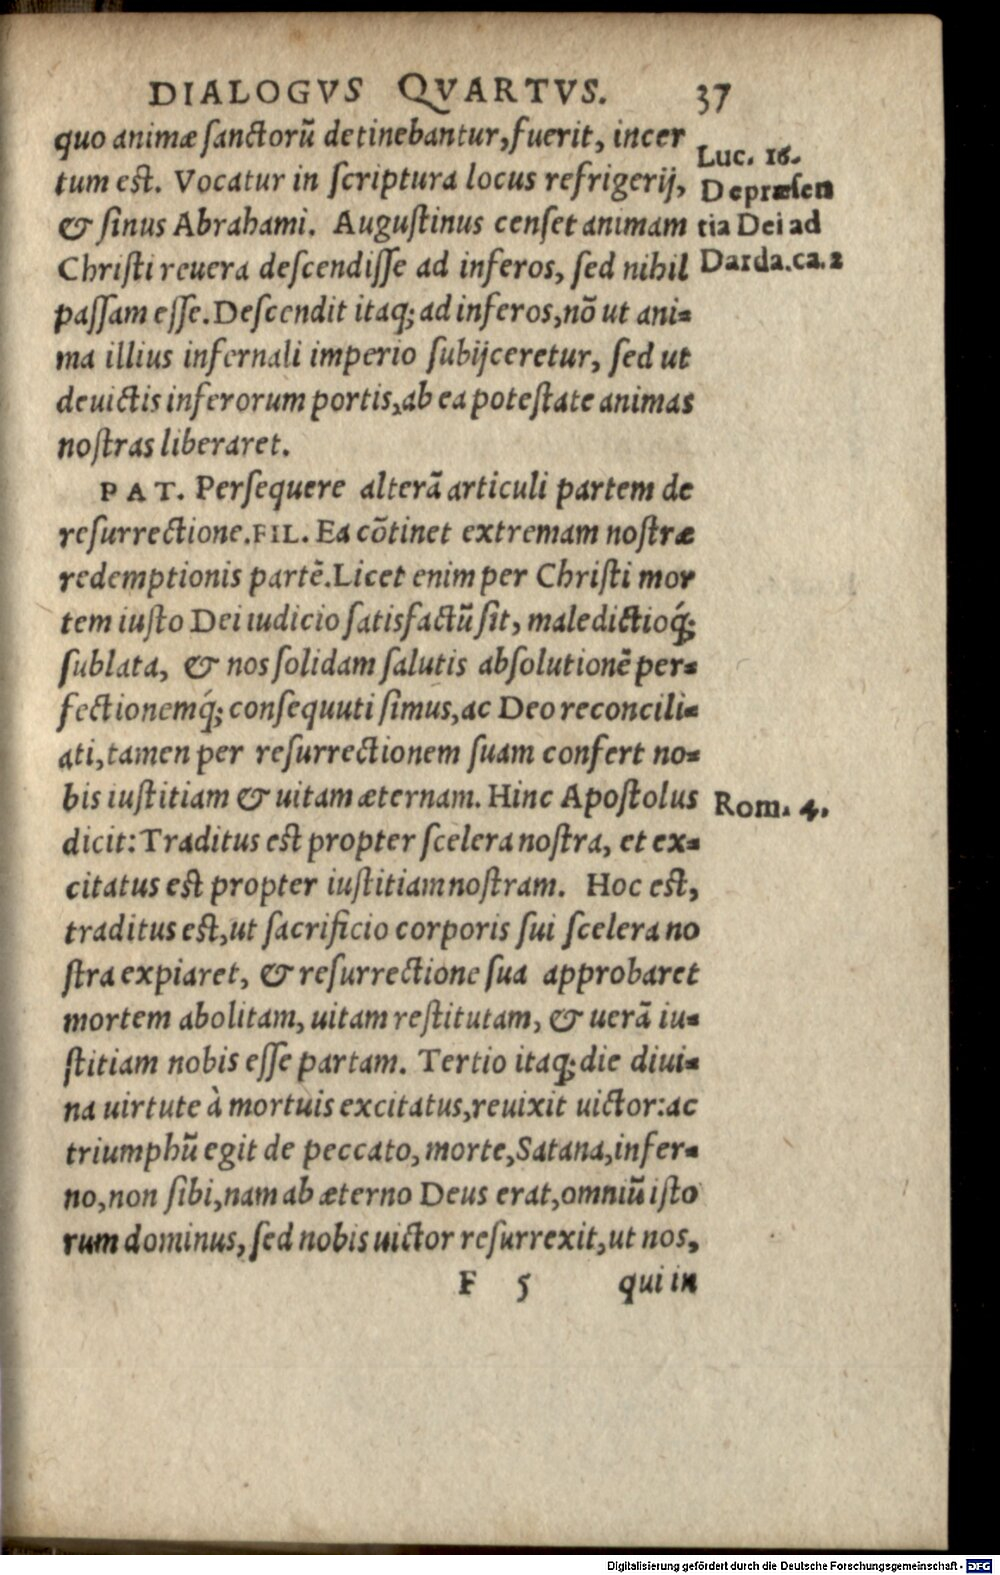 DIALOGVS QVARTVS. 37
quo animæ ſanctorũ detinebantur, fuerit, incer
tum est. Vocatur in ſcriptura locus refrigerij,
& ſinus Abrahami. Auguſtinus cenſet animam
Chriſti reuera deſcendiſſe ad inferos, ſed nihil
paſſam eſſe. Deſcendit itaq; ad inferos, nõ ut ani-
ma illius infernali imperio ſubijceretur, ſed ut
deuictis inferorum portis, ab ea poteſtate animas
noſtras liberaret.
Luc. 16.
De præſen
tia Dei ad
Darda. ca. 2
PAT. Perſequere alterã articuli partem de
reſurrectione. FIL. Ea cõtinet extremam noſtræ
redemptionis partẽ. Licet enim per Chriſti mor
tem iuſto Dei iudicio ſatisfactũ ſit, maledictioq́;
ſublata, & nos ſolidam ſalutis abſolutionẽ per-
fectionemq́; conſequuti ſimus, ac Deo reconcili-
ati, tamen per reſurrectionem ſuam confert no-
bis iuſtitiam & uitam æternam. Hinc Apoſtolus
dicit: Traditus eſt propter ſcelera noſtra, et ex-
citatus eſt propter iuſtitiam noſtram. Hoc eſt,
traditus eſt, ut ſacrificio corporis ſui ſcelera no
ſtra expiaret, & reſurrectione ſua approbaret
mortem abolitam, uitam reſtitutam, & uerã iu-
ſtitiam nobis eſſe partam. Tertio itaq; die diui-
na uirtute à mortuis excitatus, reuixit uictor: ac
triumphũ egit de peccato, morte, Satana, infer-
no, non ſibi, nam ab æterno Deus erat, omniũ iſto
rum dominus, ſed nobis uictor reſurrexit, ut nos,
Rom. 4.
F 5 qui in
Digitalisierung gefördert durch die Deutsche Forschungsgemeinschaft - DFG